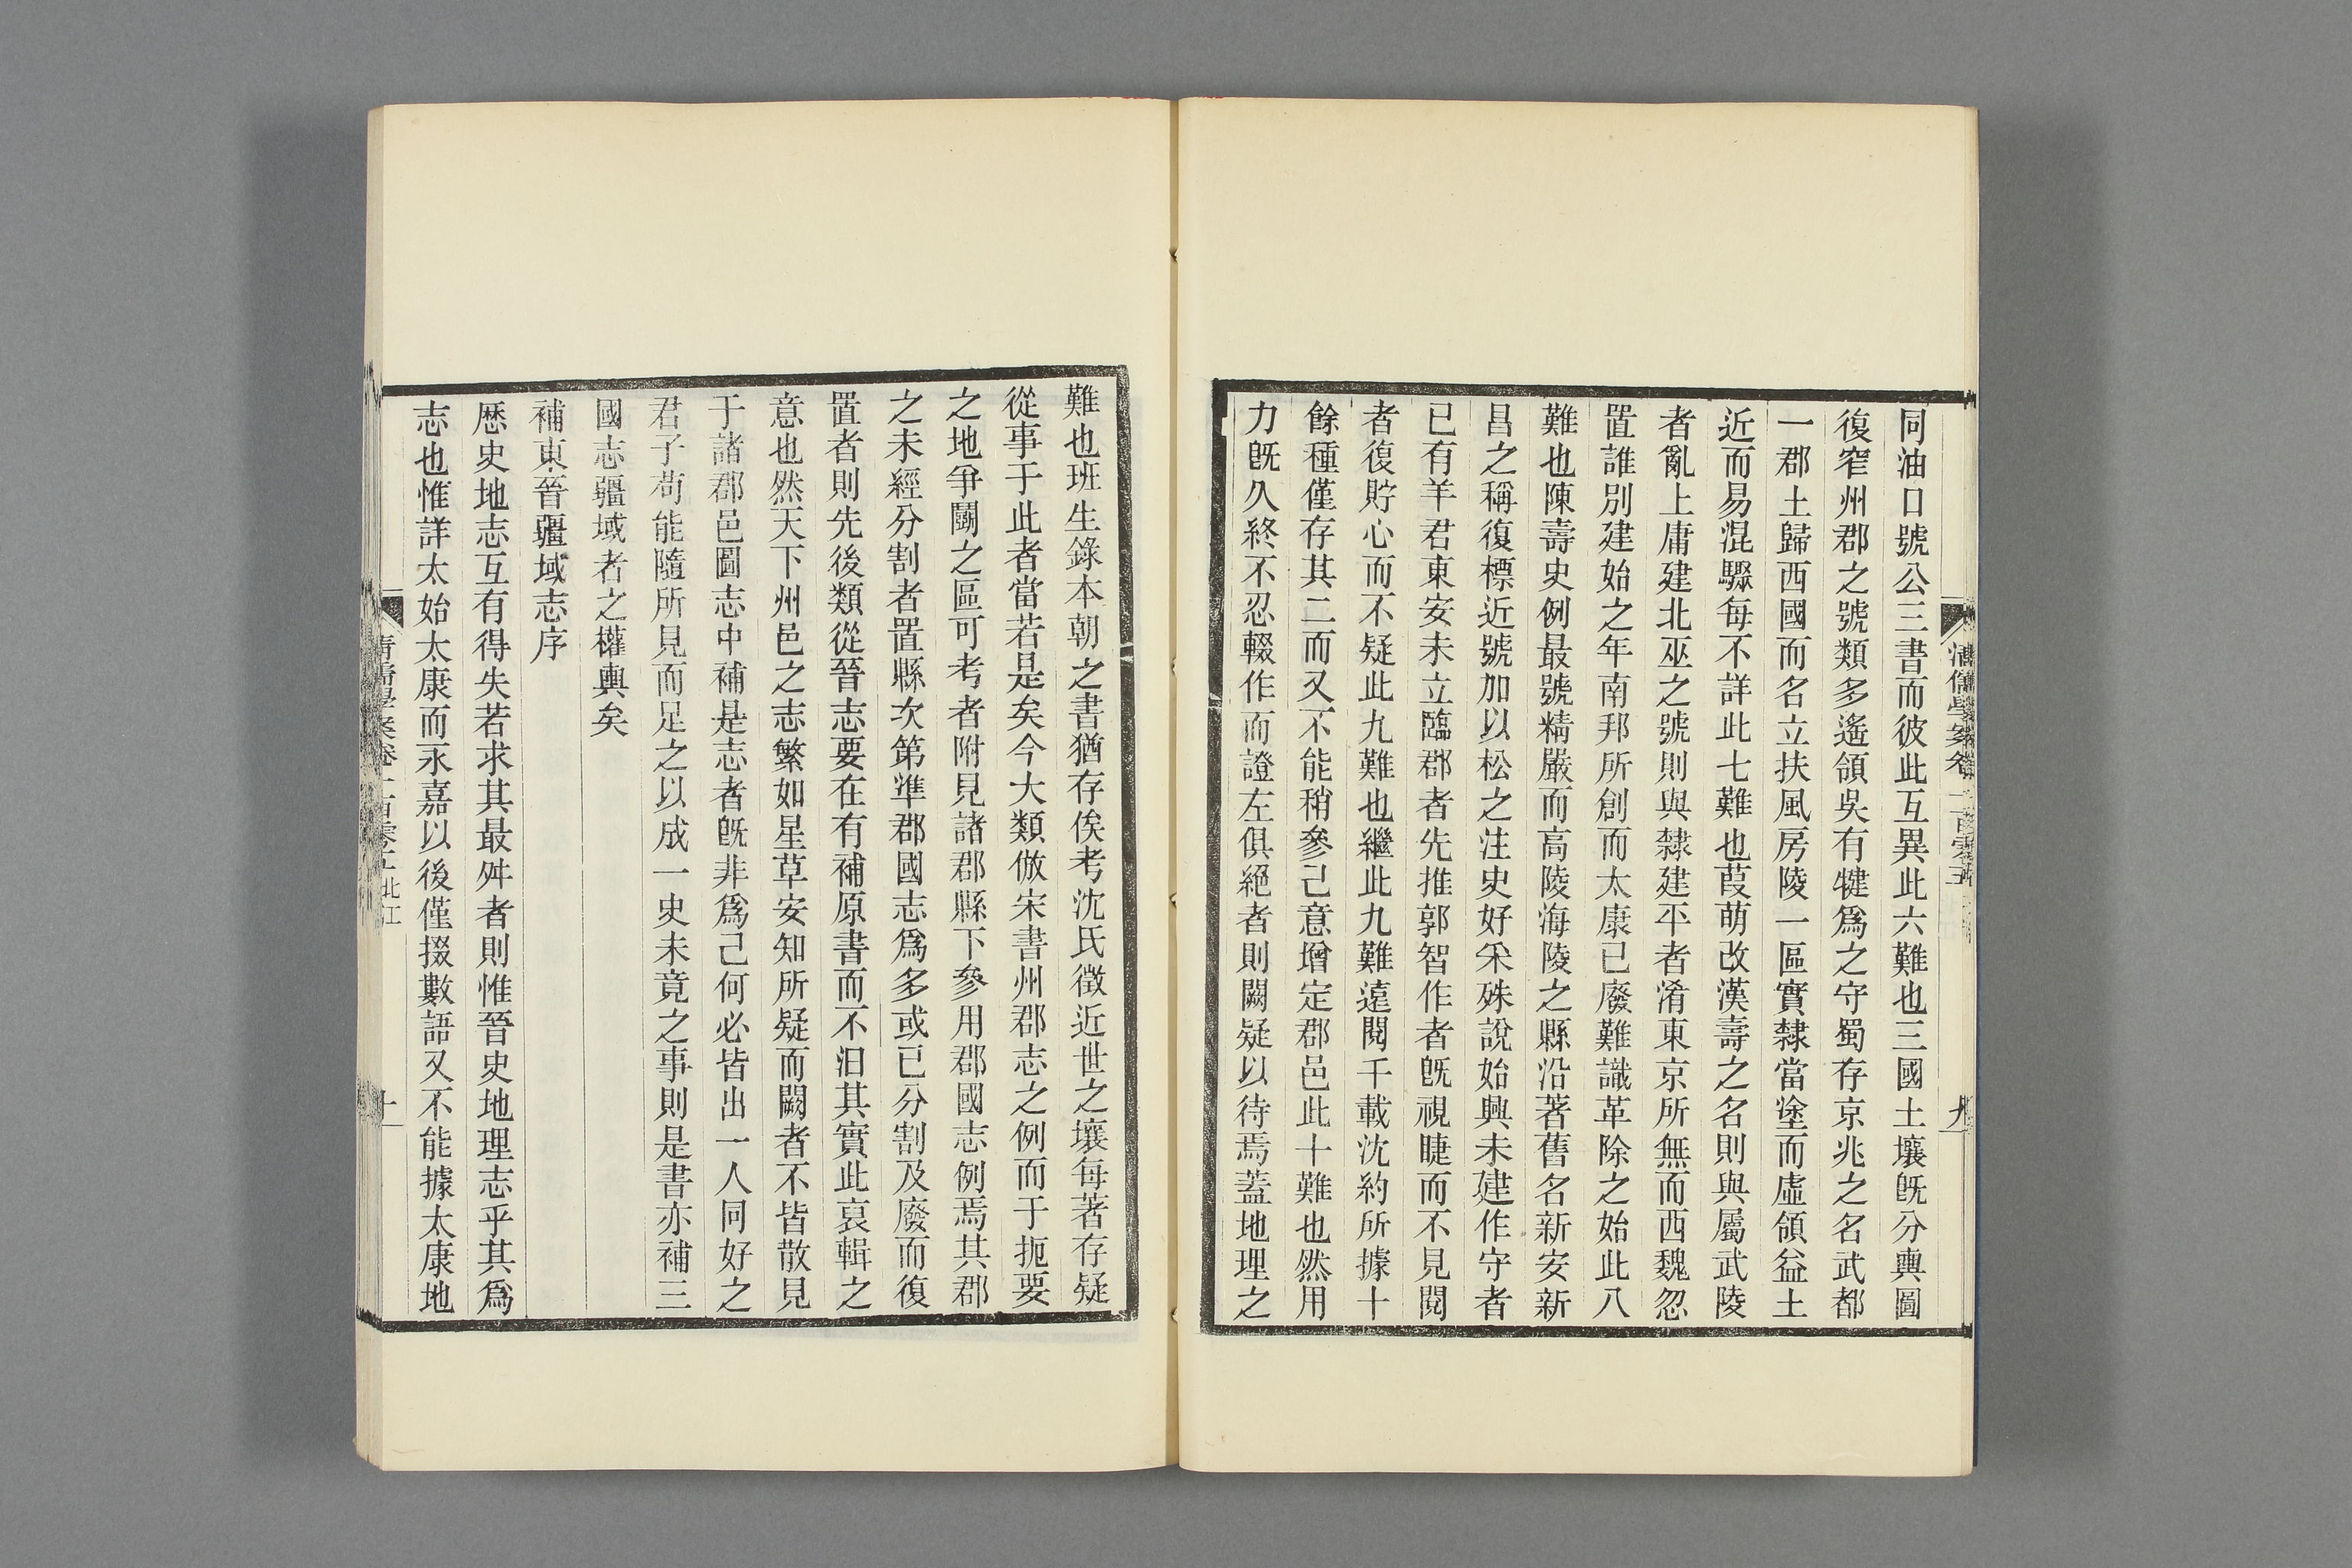 同油口號公三書而彼此互異此六難也三國土壤旣分輿圖
復窄州郡之號類多遙領吳有犍爲之守蜀存京兆之名武都
一郡土歸西國而名立扶風房陵一區實隸當塗而虛領益土
近而易混驟每不詳此七難也葭萌改漢壽之名則與屬武陵
者亂上庸建北巫之號則與隸建平者淆東京所無而西魏忽
置誰別建始之年南邦所創而太康已廢難識革除之始此八
難也陳壽史例最號精嚴而高陵海陵之縣沿著舊名新安新
昌之稱復標近號加以松之注史好采殊說始興未建作守者
已有羊君東安未立臨郡者先推郭智作者旣視睫而不見閱
者復貯心而不疑此九難也繼此九難遠閱千載沈約所據十
餘種僅存其二而又不能稍參己意增定郡邑此十難也然用
力旣久終不忍輟作而證左俱絕者則闕疑以待焉蓋地理之
清儒學案卷一百零五
九
難也班生錄本朝之書猶存俟考沈氏徵近世之壤每著存疑
從事于此者當若是矣今大類倣宋書州郡志之例而于扼要
之地爭鬭之區可考者附見諸郡縣下參用郡國志例焉其郡
之未經分割者置縣次第準郡國志爲多或已分割及廢而復
置者則先後類從晉志要在有補原書而不汩其實此裒輯之
意也然天下州邑之志繁如星草安知所疑而闕者不皆散見
于諸郡邑圖志中補是志者旣非爲己何必皆出一人同好之
君子苟能隨所見而足之以成一史未竟之事則是書亦補三
國志疆域者之權輿矣
補東晉疆域志序
歷史地志互有得失若求其最舛者則惟晉史地理志乎其爲
志也惟詳太始太康而永嘉以後僅掇數語又不能據太康地
清儒學案卷一百零五 北江
十